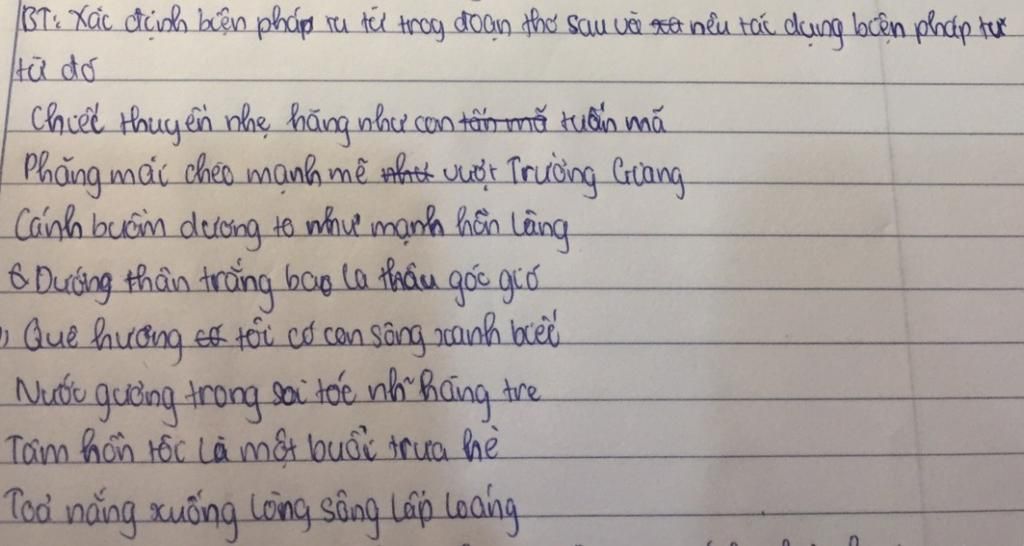 BT: Xác định biện pháp tu từ trog đoạn thơ sau và nêu tác dụng biện pháp tu
từ đó
Chiếc thuyền nhẹ hăng như con tuấn mã
Phăng mái chèo mạnh mẽ vượt Trường Giang
Cánh buồm dương to như mạnh hồn làng
Dướng thân trắng bao la thâu góc gió
Quê hương tôi có con sông xanh biếc
Nước gương trong soi tóc nh~ hàng tre
Tâm hồn tôi là một buổi trưa hè
Toả nắng xuống lòng sông lấp loáng